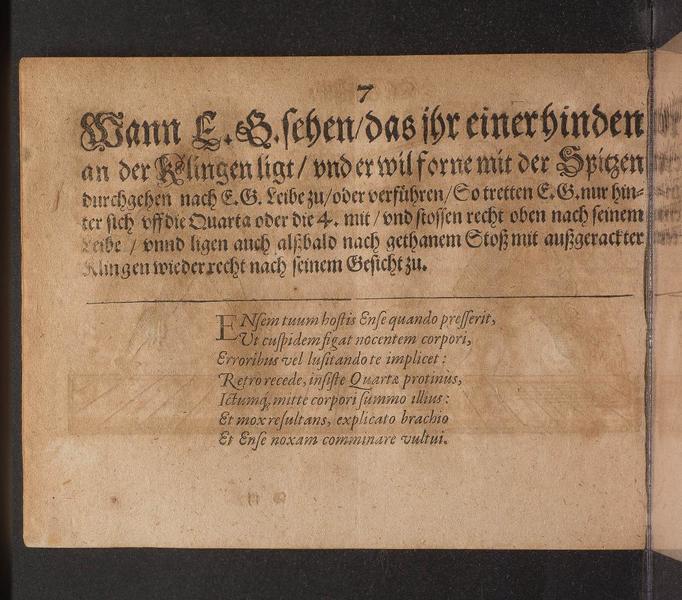 7
Wann E. G. sehen/das ihr einer hinden
an der Klingen ligt/ vnd er wil forne mit der Spitzen
durchgehen nach E. G. Leibe zu/oder verführen/So tretten E. G. nur hin-
ter sich vff die Quarta oder die 4. mit/ vnd stossen recht oben nach seinem
Leibe / vnnd ligen auch alßbald nach gethanem Stoß mit außgerackter
Klingen wieder recht nach seinem Gesicht zu.
ENsem tuum hostis Ense quando presserit,
Vt cuspidem figat nocentem corpori,
Erroribus vel lusitando te implicet:
Retro recede, insiste Quartæ protinus,
Ictumq; mitte corpori summo illius:
Et mox resultans, explicato brachio
Et Ense noxam comminare vultui.